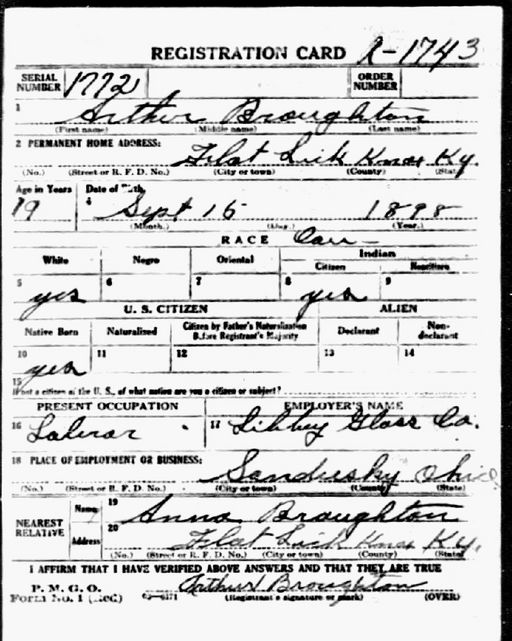 REGISTRATION CARD R-1743
SERIAL NUMBER 1772 ORDER NUMBER
1 Arthur Broughton
(First name) (Middle name) (Last name)
2 PERMANENT HOME ADDRESS: Flat Lick Knox Ky.
(No.) (Street or R. F. D. No.) (City or town) (County) (State)
Age in Years Date of Birth
19 Sept 15 1898
(Month.) (Day.) (Year.)
RACE
White Negro Oriental Indian
Citizen Noncitizen
5 yes 6 7 8 yes 9
U. S. CITIZEN ALIEN
Native Born Naturalized Citizen by Father's Naturalization Before Registrant's Majority Declarant Non-declarant
10 yes 11 12 13 14
15
If not a citizen of the U. S., of what nation are you a citizen or subject?
PRESENT OCCUPATION EMPLOYER'S NAME
16 Laborar 17 Libbey Glass Co.
18 PLACE OF EMPLOYMENT OR BUSINESS: Sandusky Ohio
(No.) (Street or R. F. D. No.) (City or town) (County) (State)
NEAREST RELATIVE Name 19 Anna Broughton
Address 20 Flat Lick Knox Ky.
(No.) (Street or R. F. D. No.) (City or town) (County) (State)
I AFFIRM THAT I HAVE VERIFIED ABOVE ANSWERS AND THAT THEY ARE TRUE
P. M. G. O. Arthur Broughton
Form No. 1 (Red) 03-6171 (Registrant's signature or mark) (OVER)